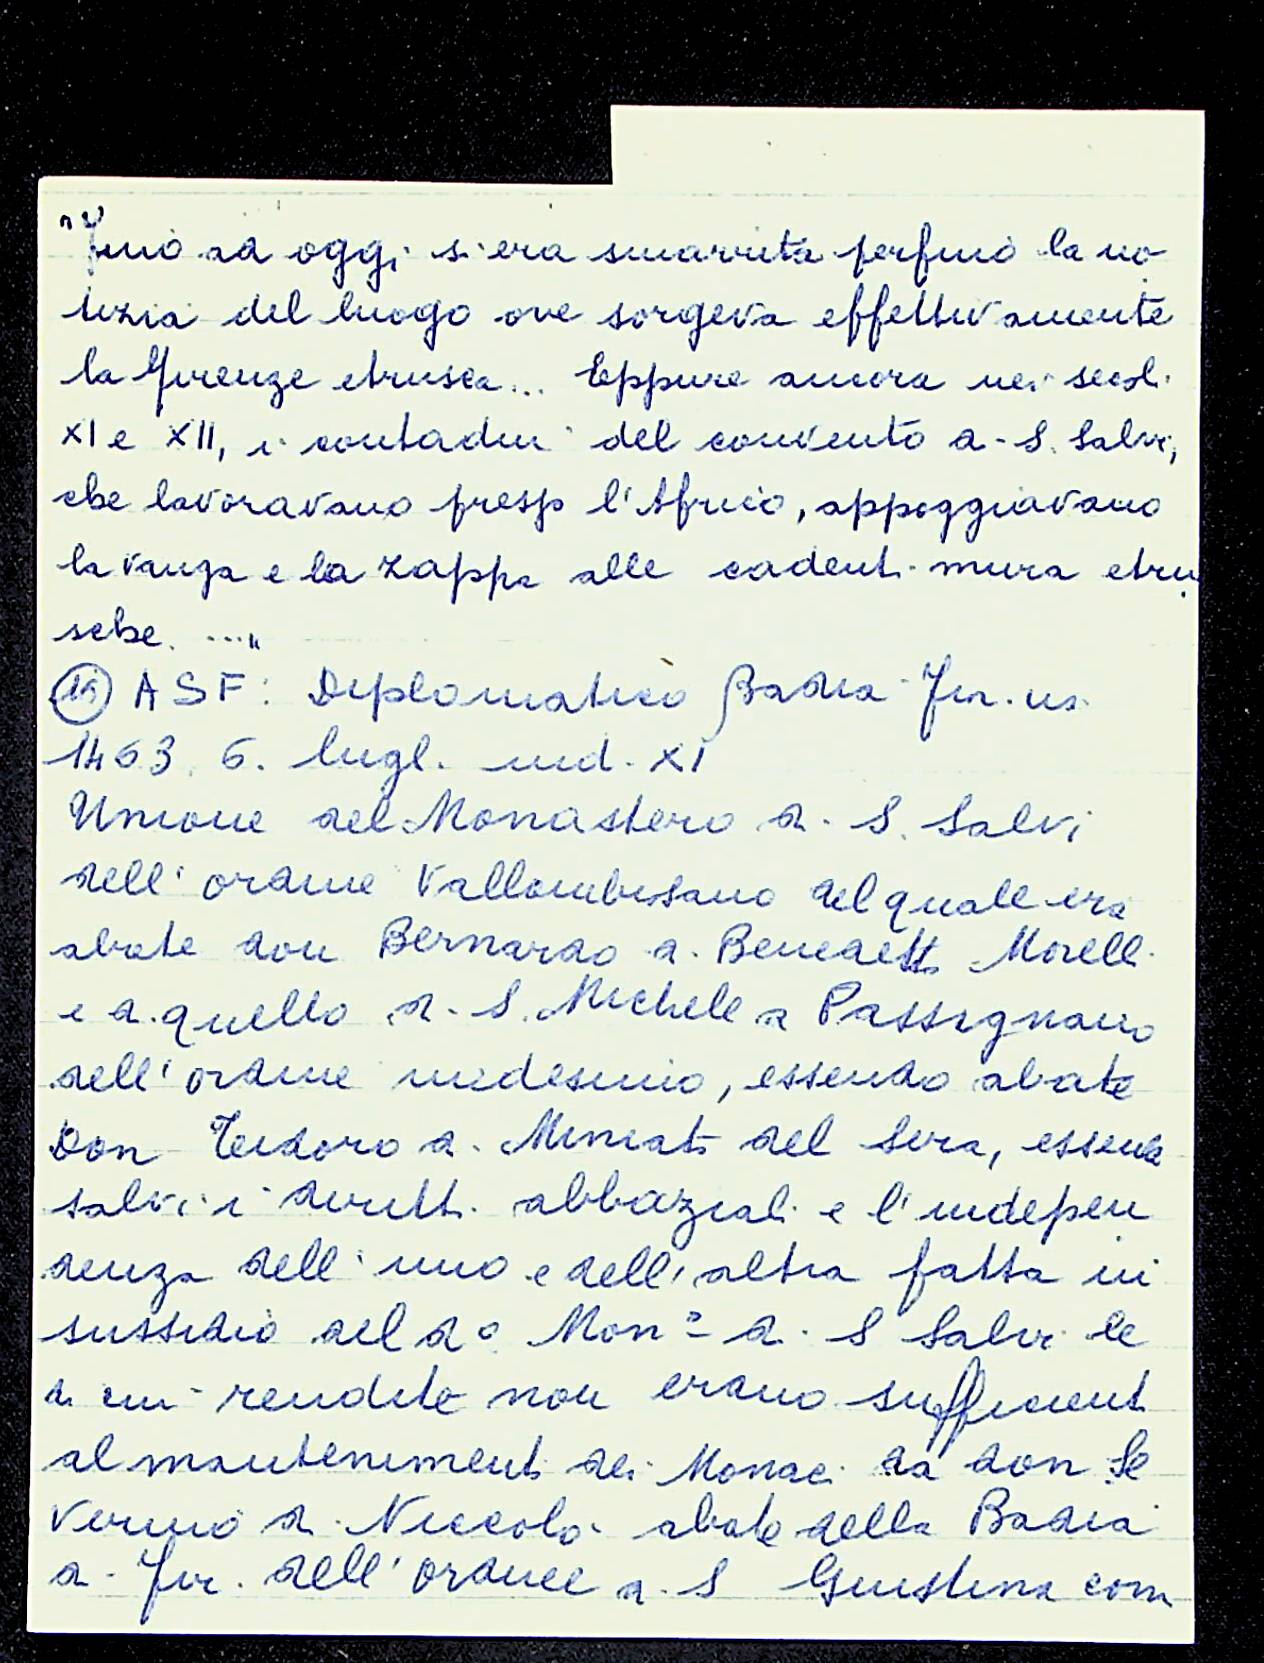 "Fino ad oggi si era smarrita perfino la no
tizia del luogo ove sorgeva effettivamente
la Firenze etrusca... Eppure ancora nei secoli
XI e XII, i contadini del convento di S. Salvi,
che lavoravano presso l'Africo, appoggiavano
la vanga e la zappa alle cadenti mura etru
sche. ...."
ASF: Diplomatico Badia Fior.na
1463. 6. lugl. ind. XI
Unione del Monastero di S. Salvi
dell'ordine Vallombrosano del quale era
abate don Bernardo di Benedetto Morelli
e di quello di S. Michele a Passignano
dell'ordine medesimo, essendo abate
Don Isidoro di Miniato del Sera, essendo
salvi i diritti abbaziali e l'indepen
denza dell'uno e dell'altra fatta in
sussidio del do Mono di S Salvi le
di cui rendite non erano sufficienti
al mantenimento dei Monaci da don Se
verino di Niccolo abate della Badia
di Fir. dell'ordine di S Giustina com